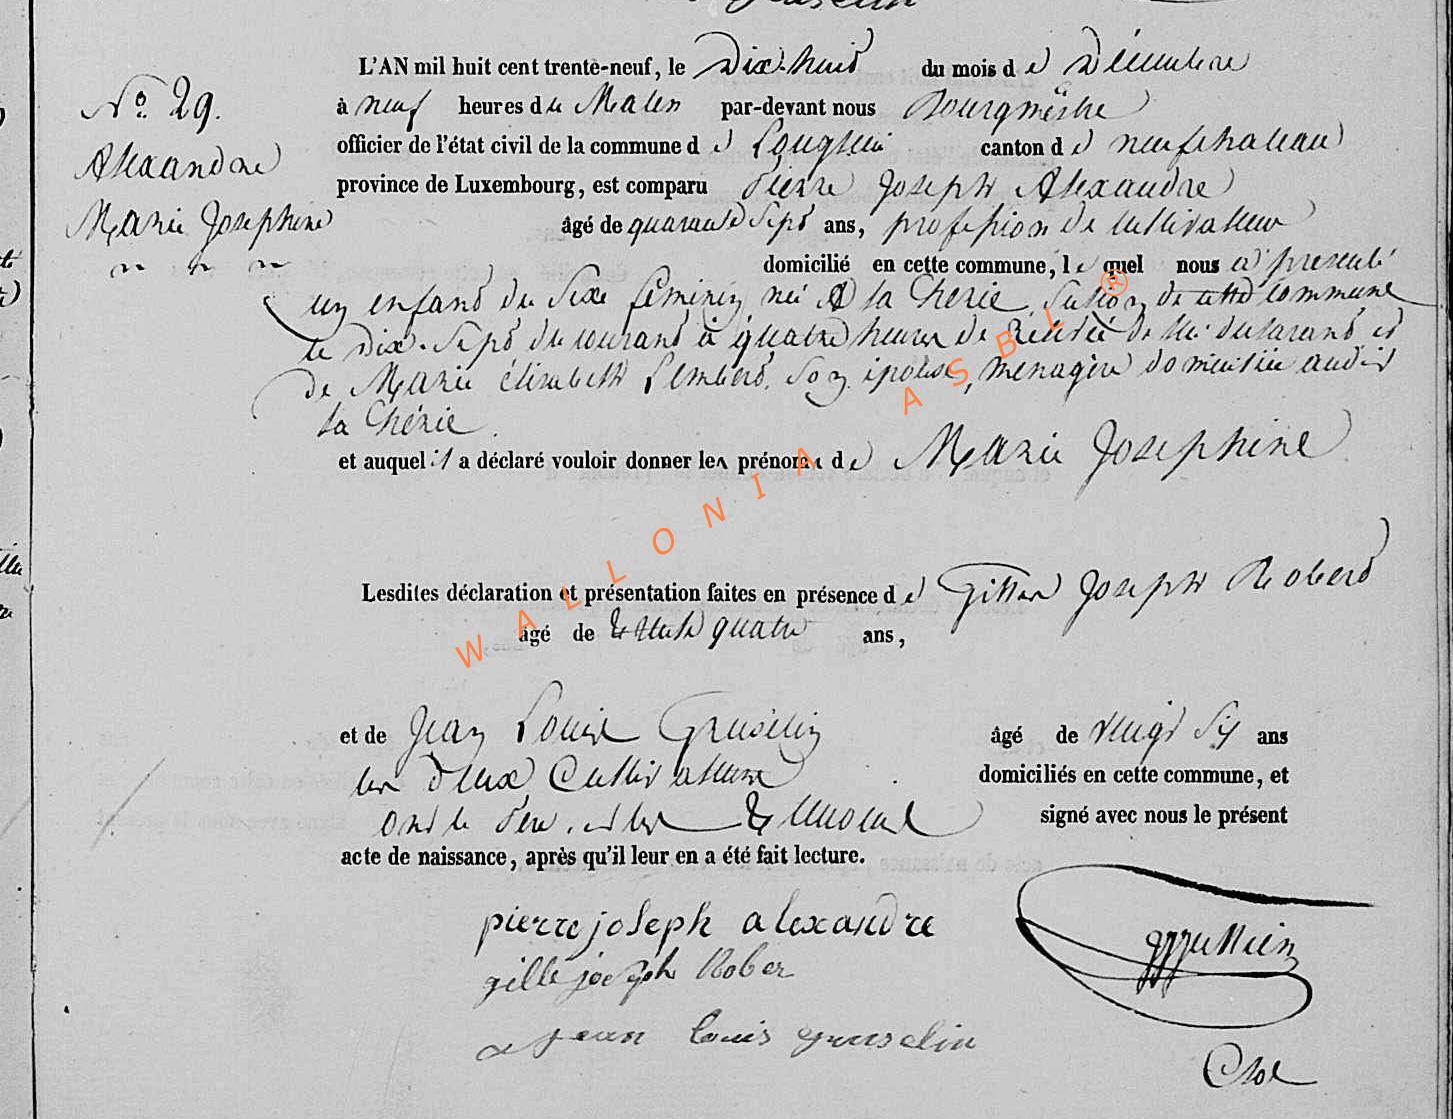 L'AN mil huit cent trente-neuf, le Dix-huit du mois de Décembre
N.o 29.
à neuf heures du Matin par-devant nous Bourgmestre
Alexandre
officier de l'état civil de la commune de Longlier canton de neufchateau
province de Luxembourg, est comparu Pierre Joseph Alexandre
Marie Josephine
âgé de quarante sept ans, profession de Cultivateur
domicilié en cette commune, lequel nous a présenté
un enfant du Sexe féminin né à la Chérie Section de cette commune
le Dix-Sept du courant à quatre heures de relevée de lui déclarant et
de Marie élisabeth Lambert, Son épouse, ménagère domiciliée audit
la Chérie.
et auquel il a déclaré vouloir donner les prénoms de Marie Josephine
Lesdites déclaration et présentation faites en présence de Gille Joseph Robert
âgé de trente quatre ans,
et de Jean Louis Gruselin âgé de vingt six ans
les deux Cultivateurs domiciliés en cette commune, et
ont le Père et les témoins signé avec nous le présent
acte de naissance, après qu'il leur en a été fait lecture.
pierre joseph alexandre
gille joseph Rober
jean louis gruselin
WALLONIA ASBL ®